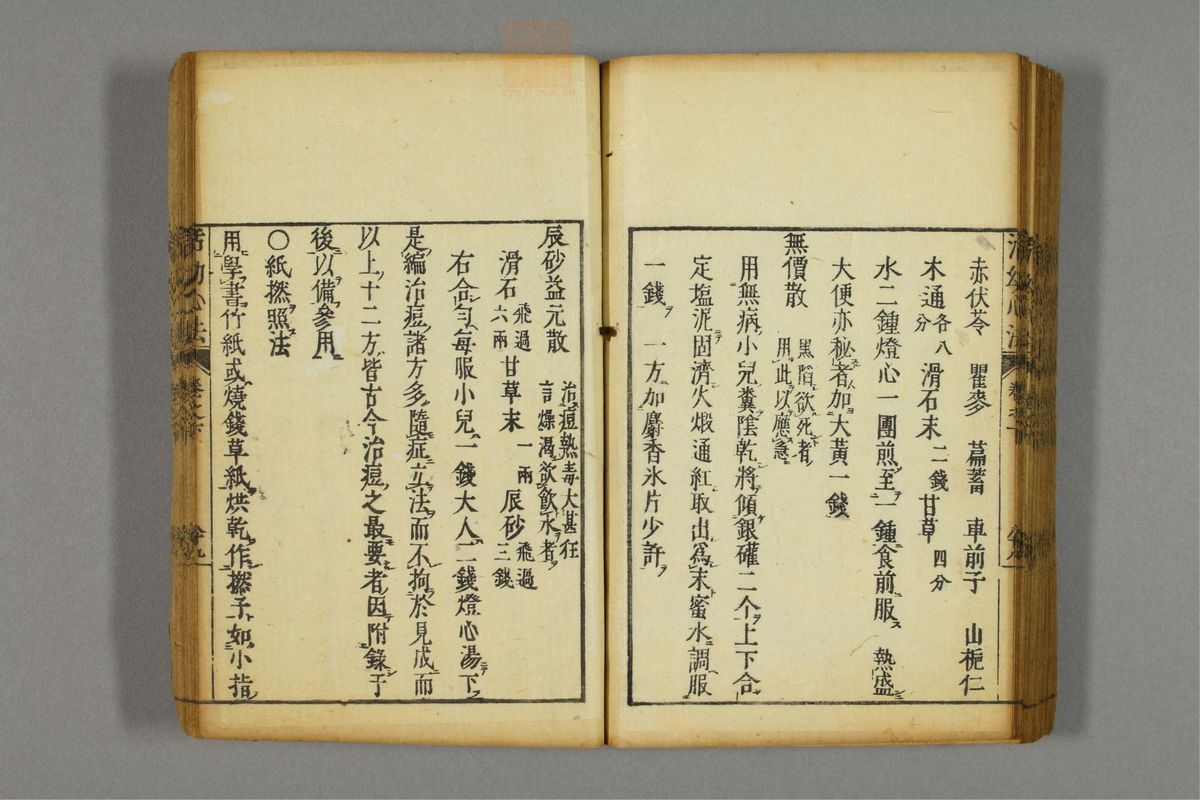 赤伏苓 瞿麥 萹蓄 車前子 山梔仁
木通各八分 滑石末二錢 甘草四分
水二鍾燈心一團煎至一鍾食前服 熱盛
大便亦秘者加大黃一錢
無價散 黑陷欲死者用此以應急
用無病小兒糞陰乾將傾銀礶二个上下合
定塩泥固濟火煅通紅取出為末蜜水調服
一錢 一方加麝香氷片少許
辰砂益元散 治痘熱毒大甚狂言燥渴欲飲水者
滑石飛過六兩 甘草末一兩 辰砂飛過三錢
右合匀每服小兒一錢大人二錢燈心湯下
是編治痘諸方多隨症立法而不拘於見成而
以上十二方皆古今治痘之最要者因附錄于
後以備參用
〇紙撚照法
用學書竹紙或燒錢草紙烘乾作撚子如小指
活幼心法